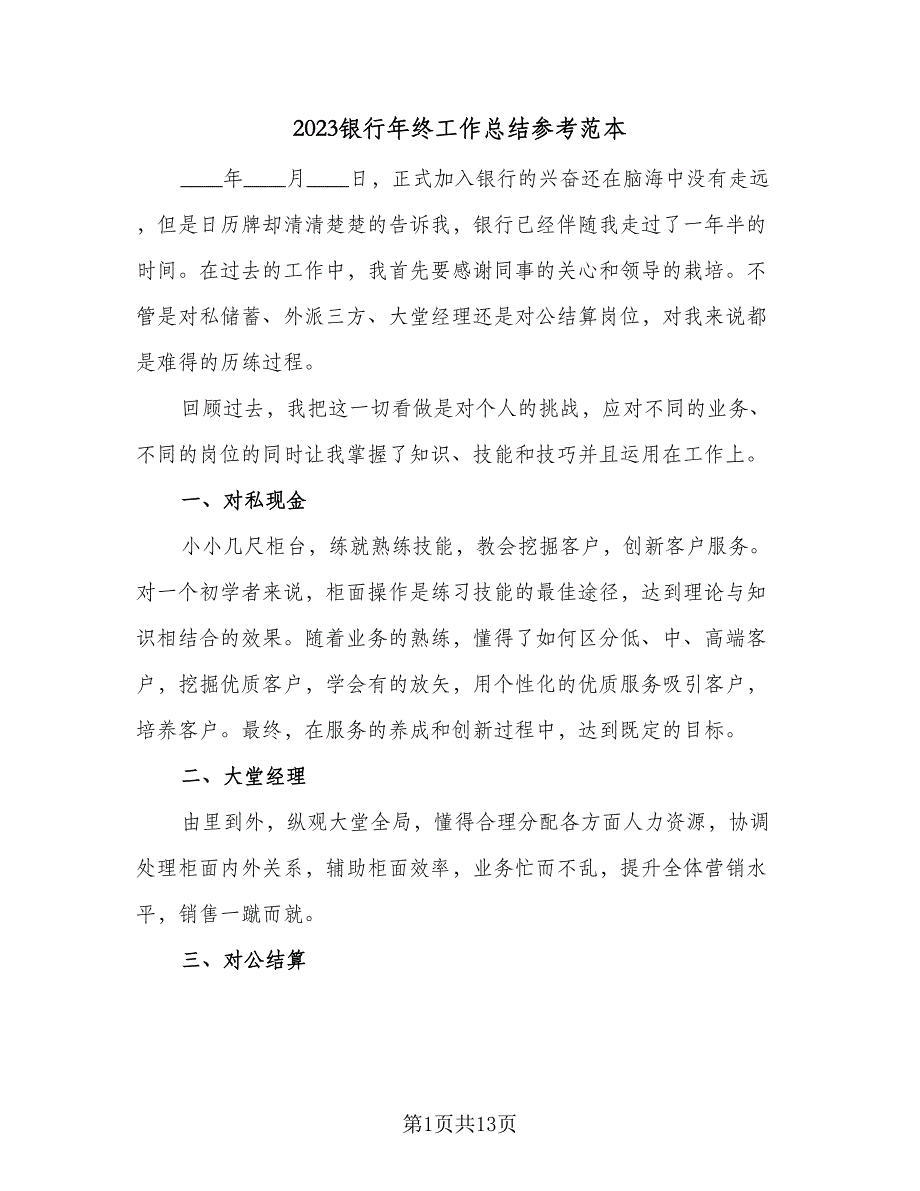 2023银行年终工作总结参考范本
____年____月____日，正式加入银行的兴奋还在脑海中没有走远
，但是日历牌却清清楚楚的告诉我，银行已经伴随我走过了一年半的
时间。在过去的工作中，我首先要感谢同事的关心和领导的栽培。不
管是对私储蓄、外派三方、大堂经理还是对公结算岗位，对我来说都
是难得的历练过程。
回顾过去，我把这一切看做是对个人的挑战，应对不同的业务、
不同的岗位的同时让我掌握了知识、技能和技巧并且运用在工作上。
一、对私现金
小小几尺柜台，练就熟练技能，教会挖掘客户，创新客户服务。
对一个初学者来说，柜面操作是练习技能的最佳途径，达到理论与知
识相结合的效果。随着业务的熟练，懂得了如何区分低、中、高端客
户，挖掘优质客户，学会有的放矢，用个性化的优质服务吸引客户，
培养客户。最终，在服务的养成和创新过程中，达到既定的目标。
二、大堂经理
由里到外，纵观大堂全局，懂得合理分配各方面人力资源，协调
处理柜面内外关系，辅助柜面效率，业务忙而不乱，提升全体营销水
平，销售一蹴而就。
三、对公结算
第1页共13页